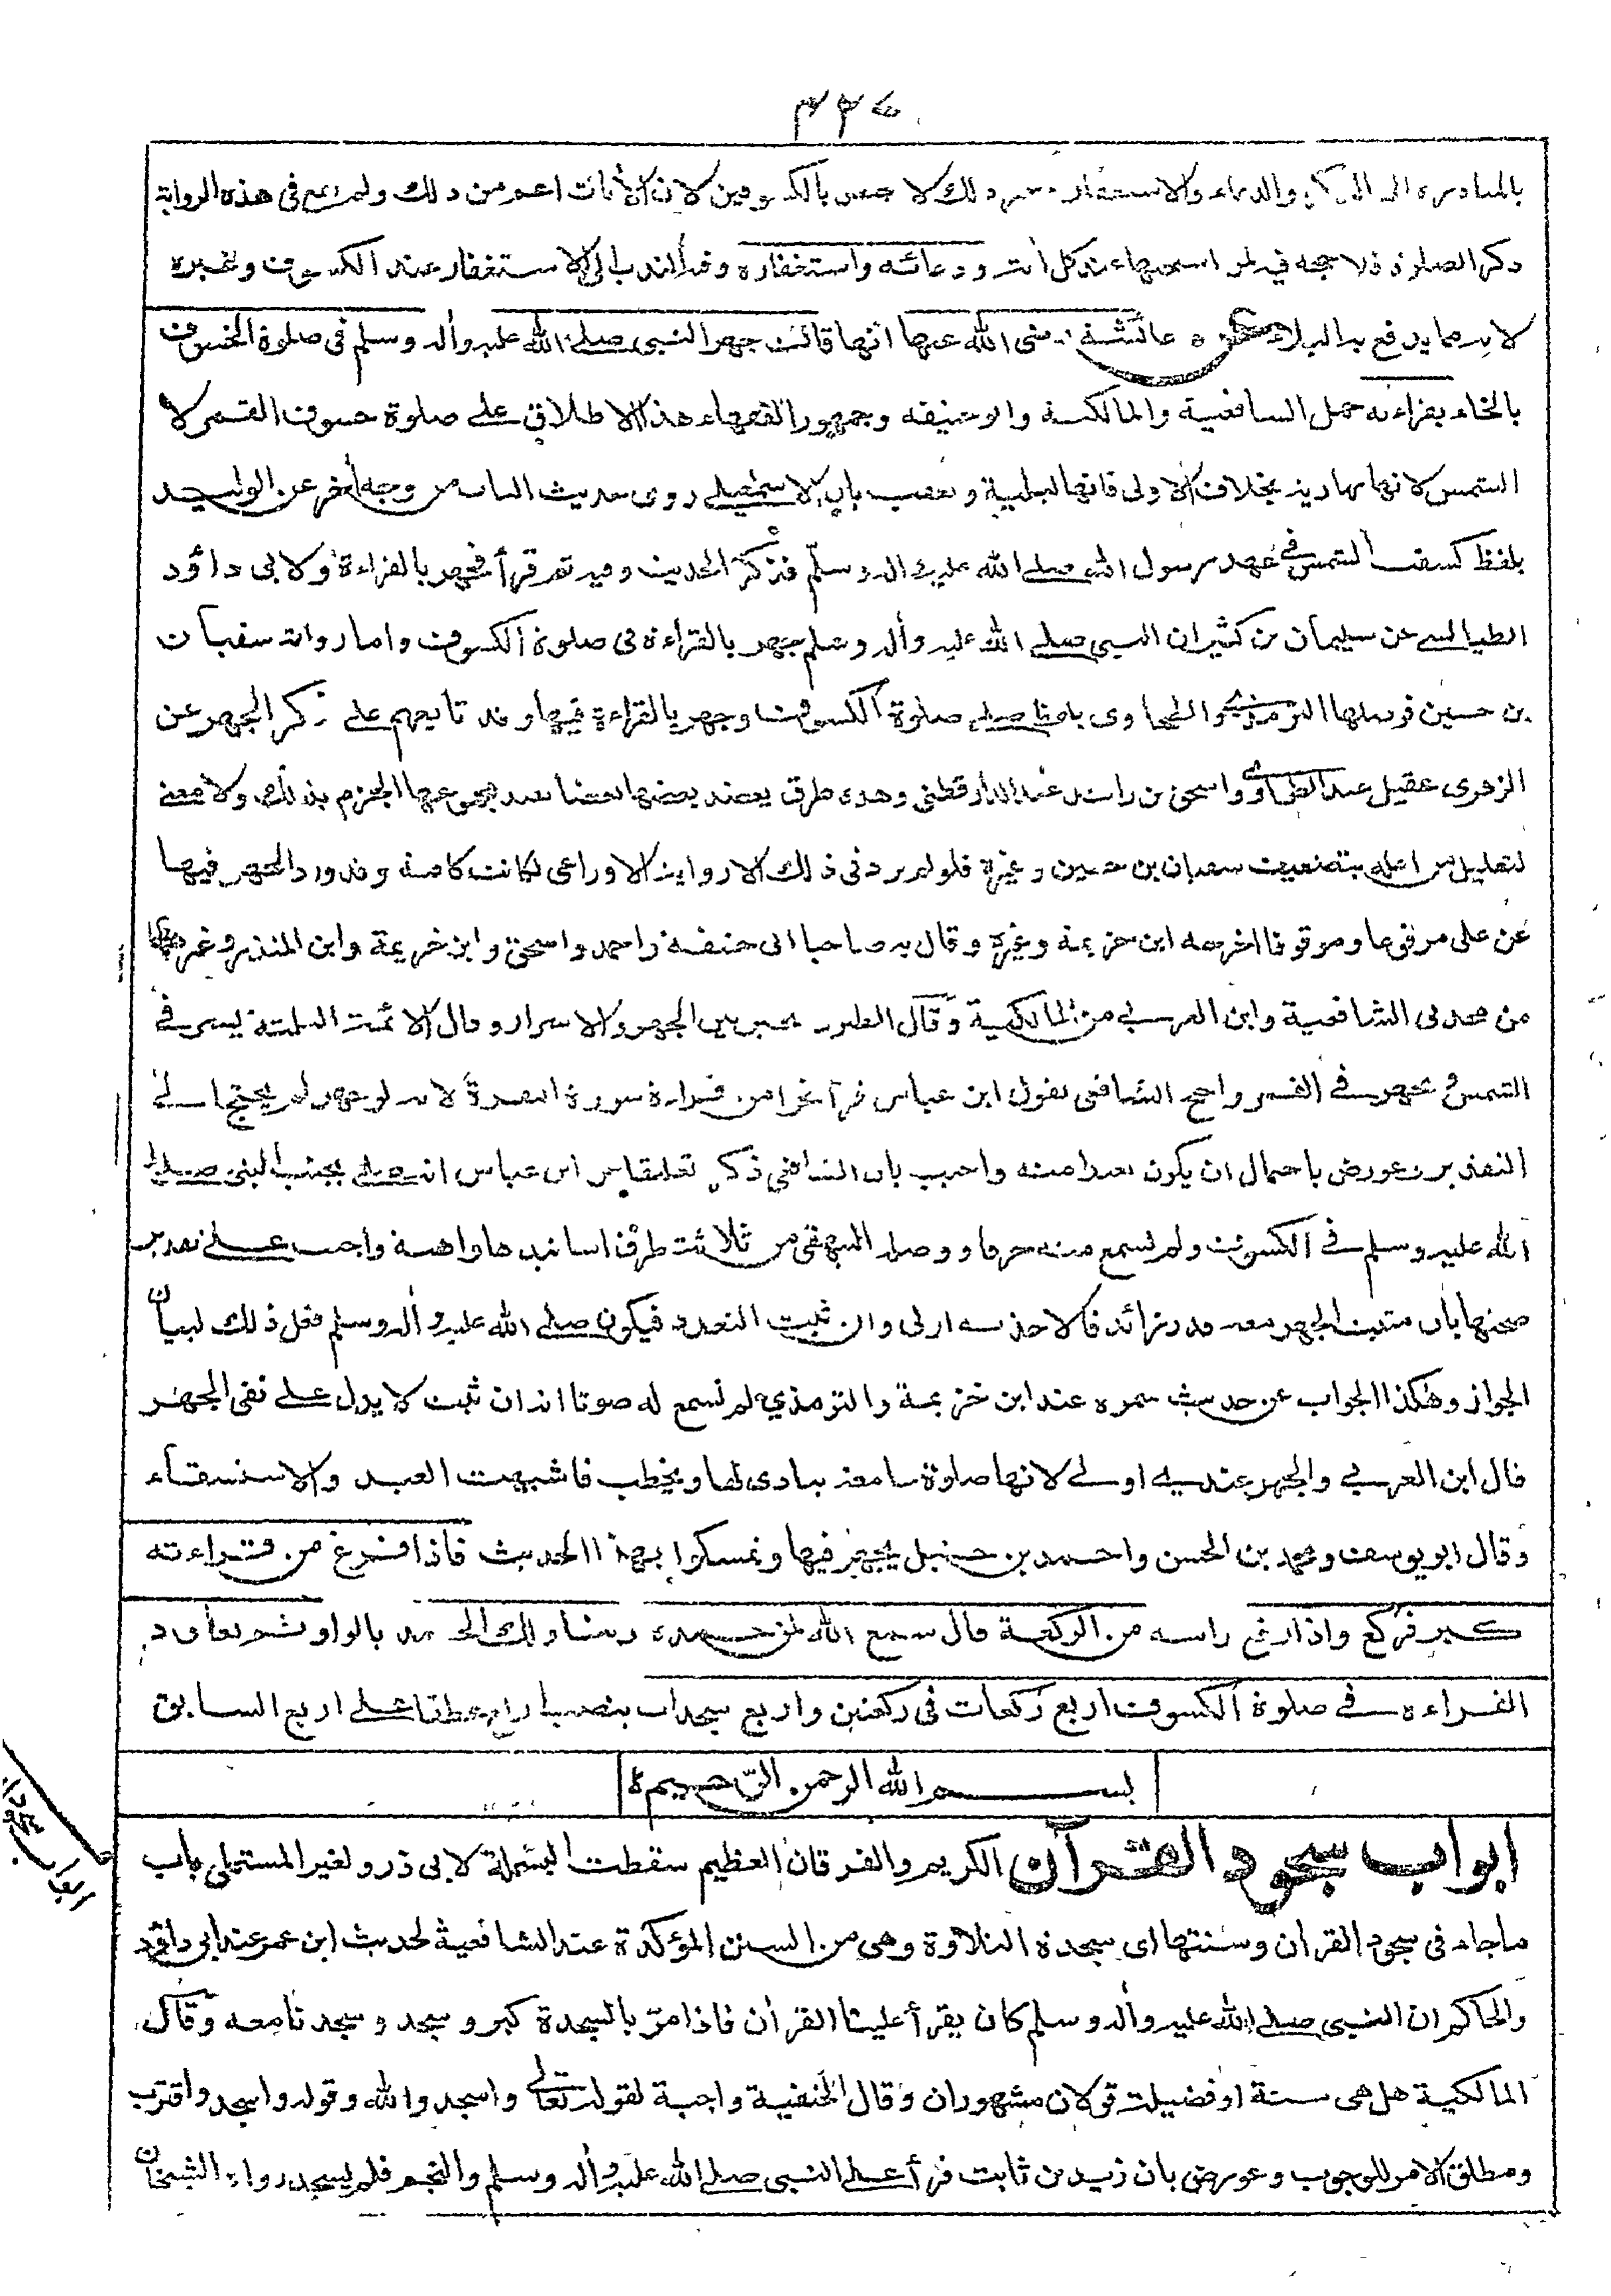 ٣٣٧
بالمبادرة الى والدعاء والاستغفار ذلك لا بالكسوفين لان الأيات اعم من ذلك ولم يقع فى هذه الرواية
ذكر الصلوة فلا حجة فيه لمن استحبها عند كل أية ودعائه واستغفاره وفيه الندب الى الاستغفار عند الكسوف وغيره
لانه مما يدفع به البلاء عن عائشة رضى الله عنها انها قالت جهر النبى صلے الله عليه وأله وسلم فى صلوة الخسوف
بالخاء بقراءته حمل الشافعية والمالكية وابو حنيفه وجمهور الفقهاء هذا الاطلاق على صلوة خسوف القمر لا
الشمس لانها نهارية بخلاف الاولى فانها ليلية وتعقب بان الاسمٰعيلے روى حديث الباب من وجه أخر عن الوليد
بلفظ كسفت الشمس فى عهد رسول الله صلے الله عليه واله وسلم فذكر الحديث وفيه ثم قرأ فجهر بالقراءة ولابى داؤد
الطيالسے عن سليمان بن كثير ان النبى صلے الله عليه وأله وسلم جهر بالقراءة فى صلوة الكسوف واما رواية سفيان
بن حسين فوصلها الترمذي والطحاوى بلفظ صلى صلوة الكسوف وجهر بالقراءة فيها وقد تابعهم على ذكر الجهر عن
الزهرى عقيل عند الطحاوى واسحق بن راشد عند الدارقطنى وهذه طرق يعضد بعضها بعضا يفيد مجموعها الجزم بذلك ولا معنے
لتعليل من اعله بتضعيف سفيان بن حسين وغيره فلو لم يرد فى ذلك الا رواية الاوزاعى لكانت كافية وقد ورد الجهر فيها
عن على مرفوعا وموقوفا اخرجه ابن خزيمة وغيره وقال به صاحبا ابى حنيفة واحمد واسحق وابن خزيمة وابن المنذر وغيرهما
من محدثى الشافعية وابن العربے من المالكية وقال الطبرى يخير بين الجهر والاسرار وقال الائمة الثلثة يسر فے
الشمس ويجهر فے القمر واحتج الشافعى بقول ابن عباس قرأ نحوا من قراءة سورة البقرة لانه لو جهر لم يحتج الے
التقدير وعورض باحتمال ان يكون بعيدا منه واجيب بان الشافعى ذكر تعليقا عن ابن عباس انه صلے بجنب النبى صلے
الله عليه وسلم فے الكسوف ولم يسمع منه حرفا ووصله البيهقى من ثلاثة طرق اسانيدها واهية واجيب علے تقدير
صحتها بان مثبت الجهر معه قدر زائد فالاخذ به اولى وان ثبت التعدد فيكون صلے الله عليه وأله وسلم فعل ذلك لبيان
الجواز وهكذا الجواب عن حديث سمره عند ابن خزيمة والترمذي لم نسمع له صوتا انه ان ثبت لا يدل علے نفى الجهر
قال ابن العربے والجهر عندے اولے لانها صلوة جامعة ينادى لها ويخطب فاشبهت العيد والاستسقاء
وقال ابو يوسف ومحمد بن الحسن واحمد بن حنبل يجهر فيها وتمسكوا بهذا الحديث فاذا فرغ من قراءته
كبر فركع واذا رفع راسه من الركعة قال سمع الله لمن حمده ربنا ولك الحمد بالواو ثم يعاود
القراءة فے صلوة الكسوف اربع ركعات فى ركعتين واربع سجدات بنصب اربع عطفا علے اربع السابق
بسم الله الرحمن الرحيم
ابواب سجود القرأن الكريم والفرقان العظيم سقطت البسملة لابى ذر ولغير المستملى باب
ما جاء فى سجود القرأن وسنتها اى سجدة التلاوة وهى من السنن المؤكدة عند الشافعية لحديث ابن عمر عند ابى داؤد
والحاكم ان النبى صلے الله عليه وأله وسلم كان يقرأ علينا القرأن فاذا مرّ بالسجدة كبر وسجد وسجدنا معه وقال
المالكية هل هى سنة او فضيلة قولان مشهوران وقال الحنفية واجبة لقوله تعالے واسجدوا لله وقوله واسجد واقترب
ومطلق الامر للوجوب وعورض بان زيد بن ثابت قرأ علے النبى صلے الله عليه وأله وسلم والنجم فلم يسجد رواه الشيخان